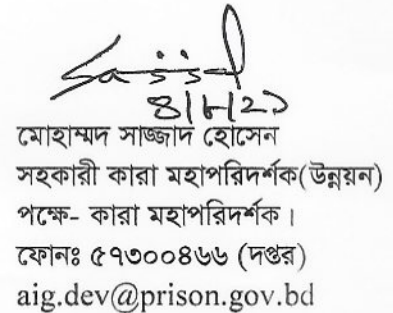 মোহাম্মদ সাজ্জাদ হোসেন
সহকারী কারা মহাপরিদর্শক(উন্নয়ন)
পক্ষে- কারা মহাপরিদর্শক।
ফোনঃ ৫৭৩০০৪৬৬ (দপ্তর)
aig.dev@prison.gov.bd